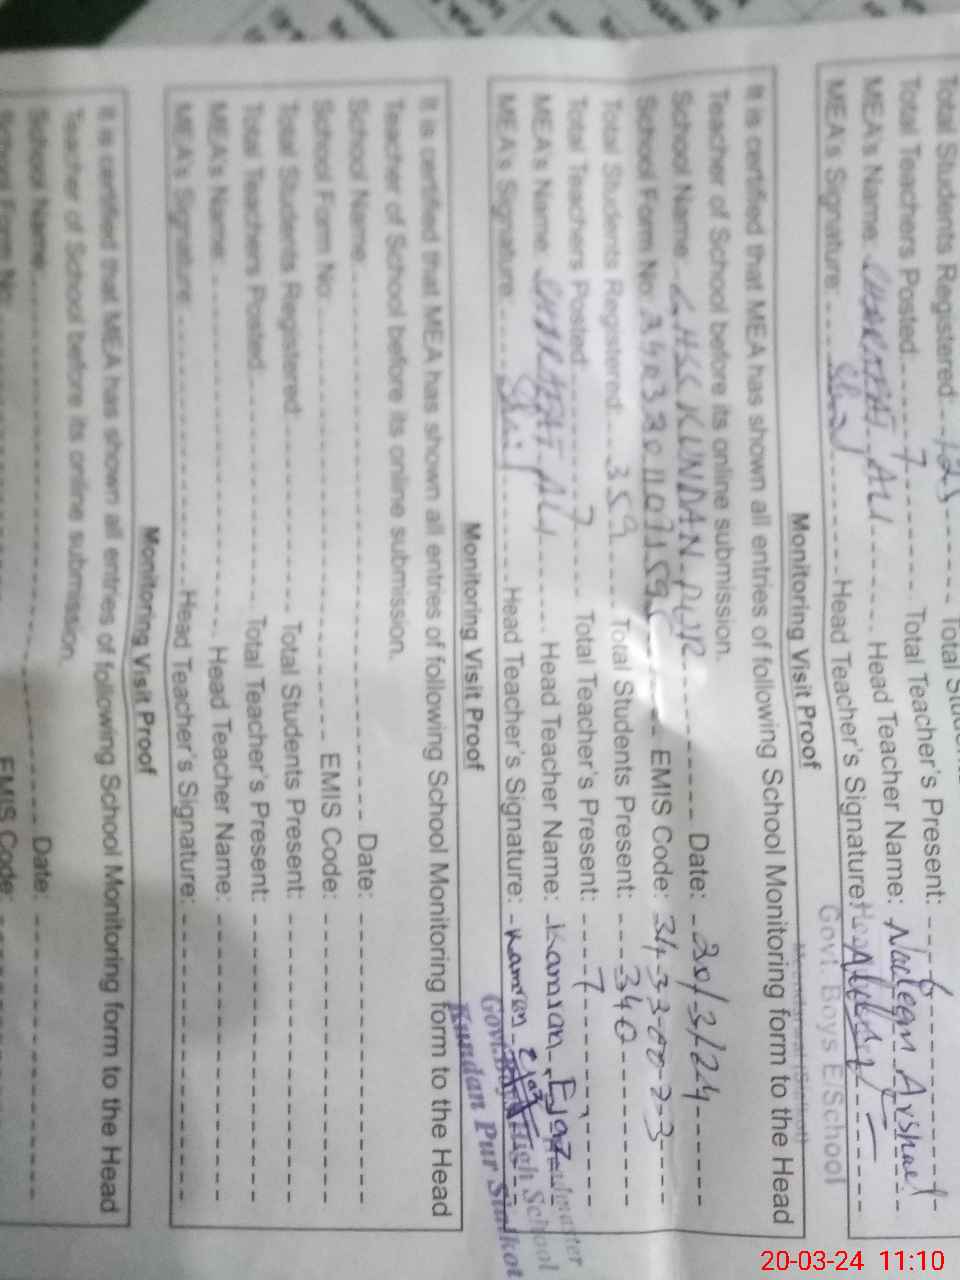 Total Students Registered: 125 Total
Total Teachers Posted: 7 Total Teacher's Present: 6
MEA's Name: ALI Head Teacher Name: Nadeem Arshad
MEA's Signature: Head Teacher's Signature:
Govt. Boys E/School
Monitoring Visit Proof
It is certified that MEA has shown all entries of following School Monitoring form to the Head
Teacher of School before its online submission.
School Name: KUNDAN PUR Date: 20/3/24
School Form No: EMIS Code: 34330023
Total Students Registered: 359 Total Students Present: 340
Total Teachers Posted: 7 Total Teacher's Present: 7
MEA's Name: ALI Head Teacher Name: Kamran Ejaz
MEA's Signature: Head Teacher's Signature: Kamran Ejaz
Headmaster
Govt. Boys High School
Kundan Pur Sialkot
Monitoring Visit Proof
It is certified that MEA has shown all entries of following School Monitoring form to the Head
Teacher of School before its online submission.
School Name: Date:
School Form No: EMIS Code:
Total Students Registered: Total Students Present:
Total Teachers Posted: Total Teacher's Present:
MEA's Name: Head Teacher Name:
MEA's Signature: Head Teacher's Signature:
Monitoring Visit Proof
It is certified that MEA has shown all entries of following School Monitoring form to the Head
Teacher of School before its online submission.
School Name: Date:
School Form No: EMIS Code:
20-03-24 11:10